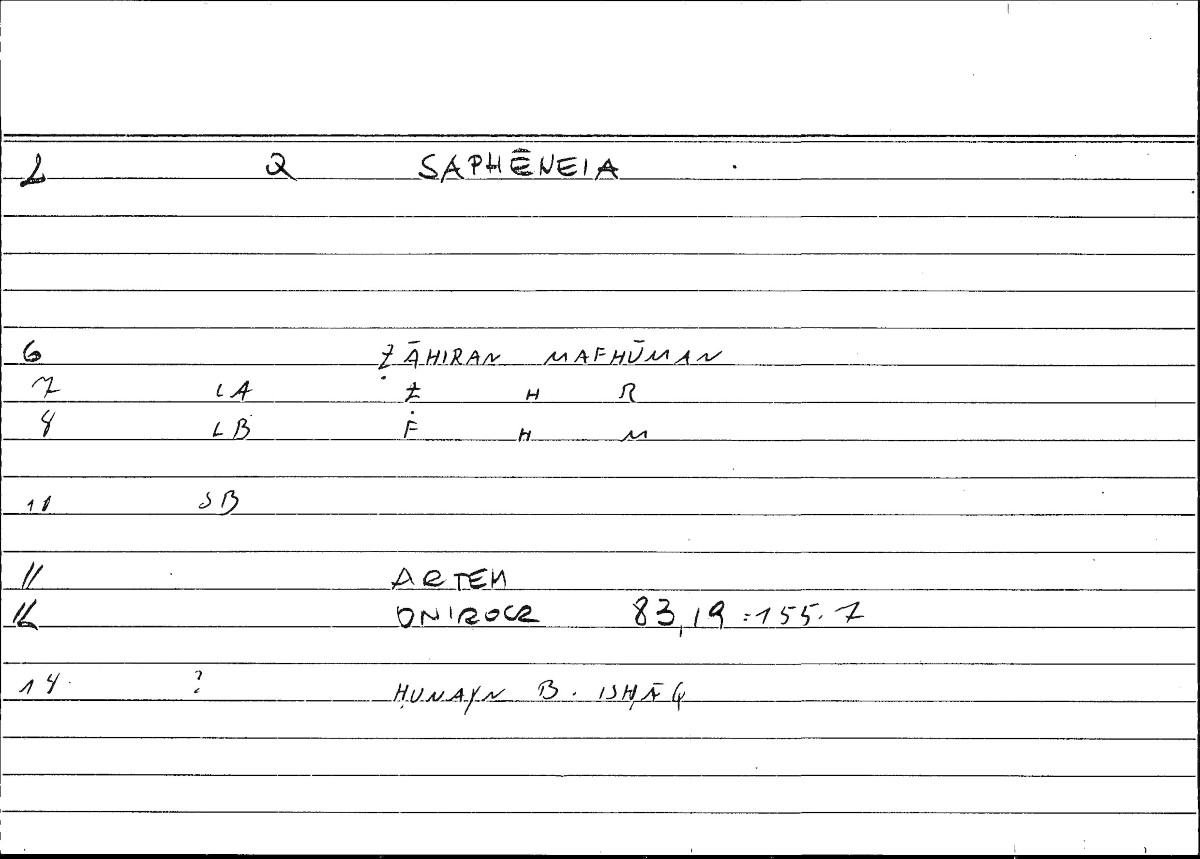 1 Q SAPHĒNEIA
6 ẒĀHIRAN MAFHŪMAN
7 LA Ẓ H R
8 LB F H M
10 SB
11 ARTEM
12 ONIROCR 83,19=155.7
14 ? ḤUNAYN B. ISḤĀQ